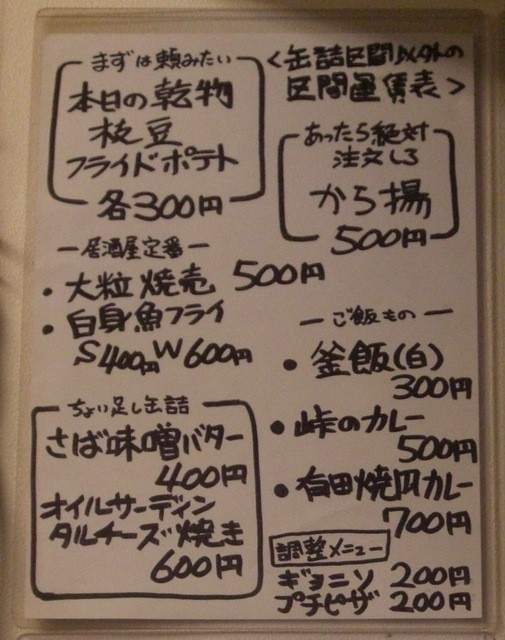 まずは頼みたい
本日の乾物
枝豆
フライドポテト
各300円
<缶詰区間以外の
区間運賃表>
あったら絶対
注文しろ
から揚
500円
ー居酒屋定番ー
・大粒焼売 500円
・白身魚フライ
S400円W600円
ーご飯ものー
・釜飯(白)
300円
・峠のカレー
500円
・有田焼皿カレー
700円
ちょい足し缶詰
さば味噌バター
400円
オイルサーディン
タルチーズ焼き
600円
調整メニュー
ギョニソ 200円
プチピザ 200円